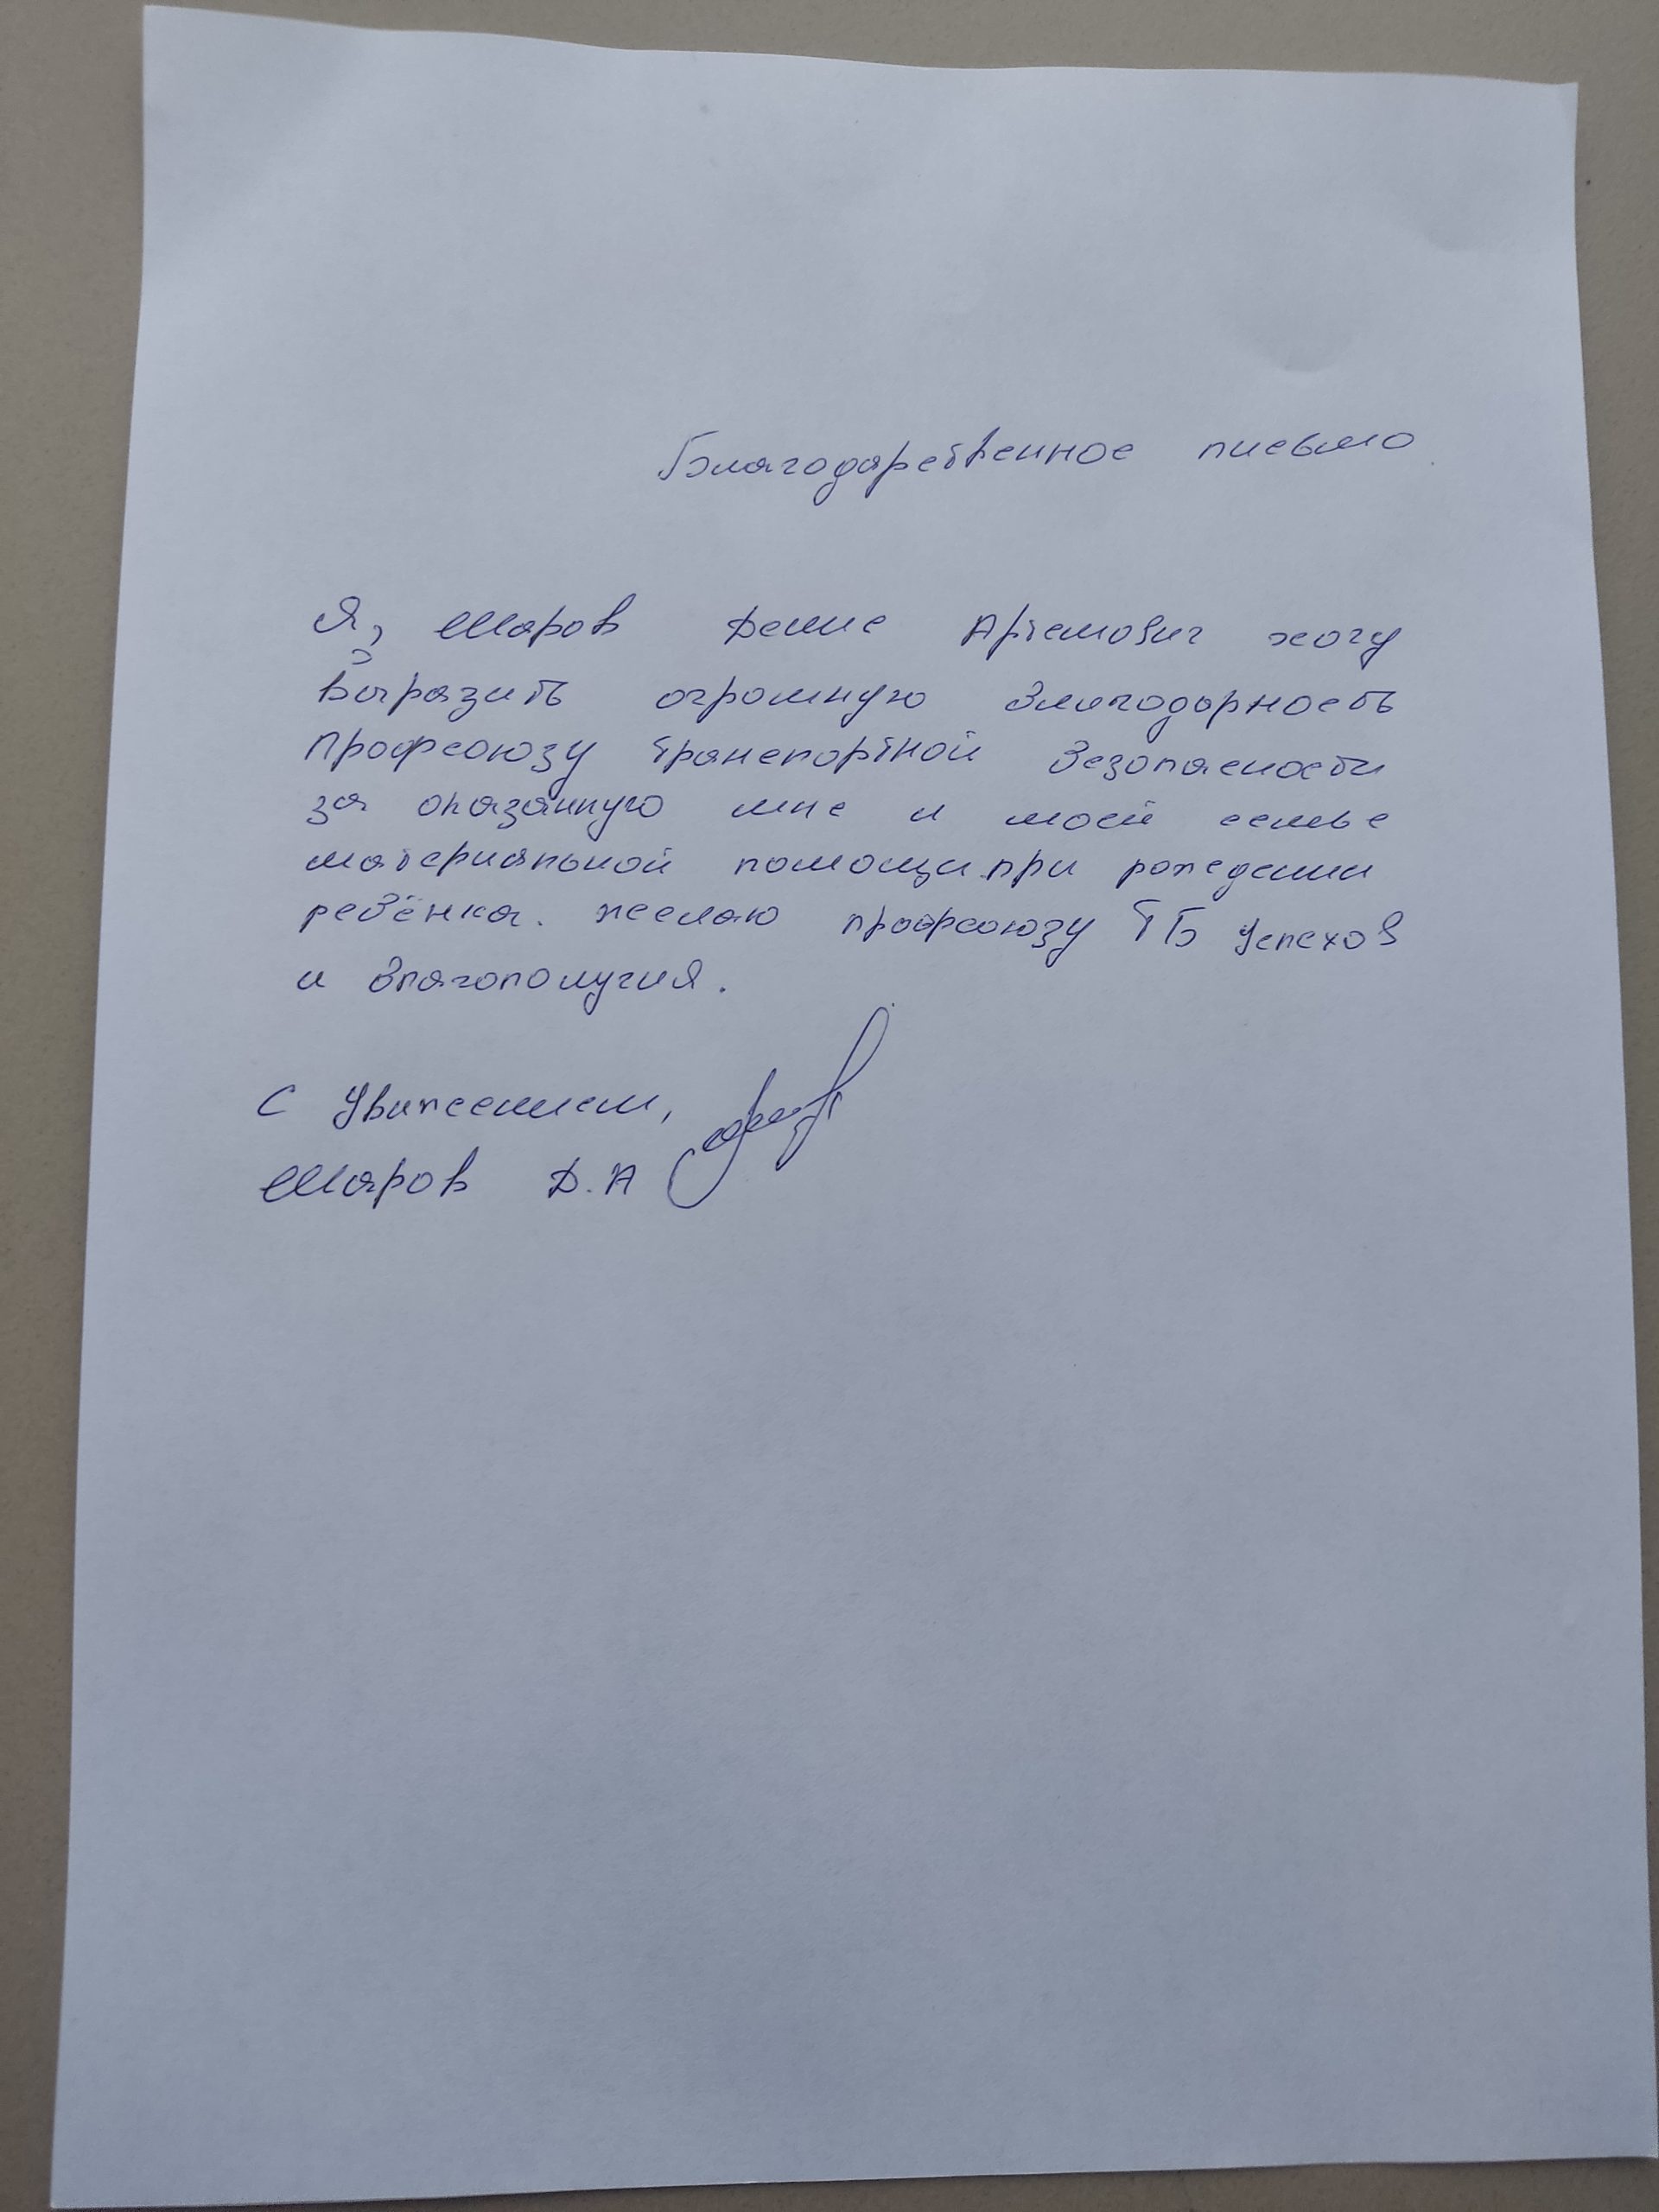 Благодарственное письмо
Я, Шаров Денис Артёмович хочу
выразить огромную благодарность
Профсоюзу транспортной безопасности
за оказанную мне и моей семье
материальной помощи при рождении
ребёнка. желаю профсоюзу ТБ успехов
и благополучия.
С уважением,
Шаров Д.А